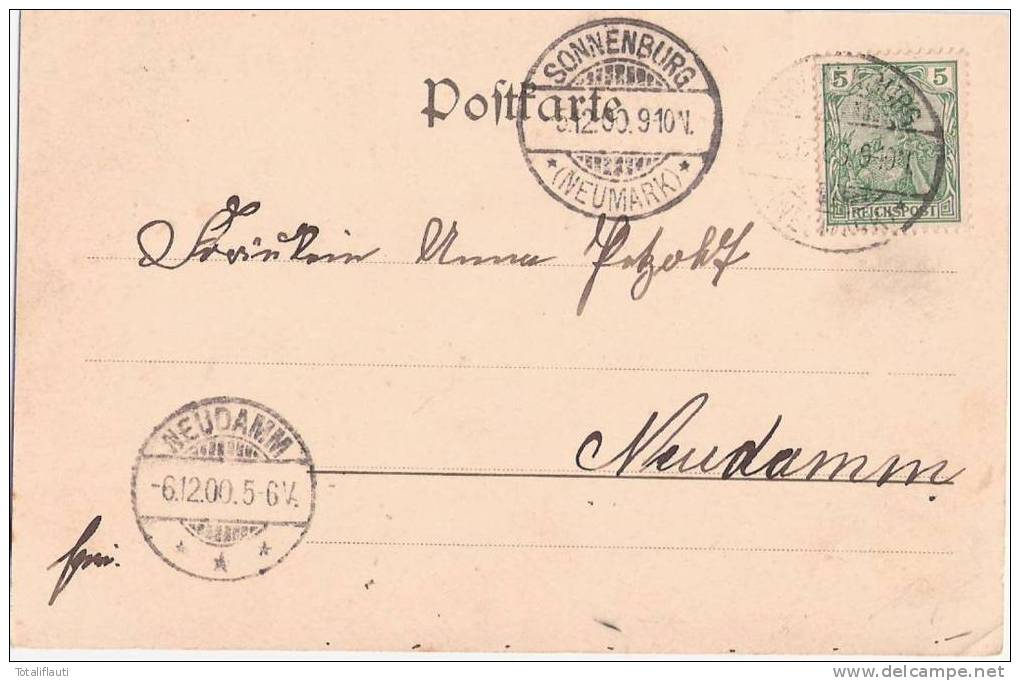 Postkarte
SONNENBURG
5.12.00.9-10V.
*(NEUMARK)*
5 5
REICHSPOST
Fräulein Anna Petzold
Neudamm
NEUDAMM
-6.12.00.5-6V.
* * *
frei.
Totaliflauti
www.delcampe.net